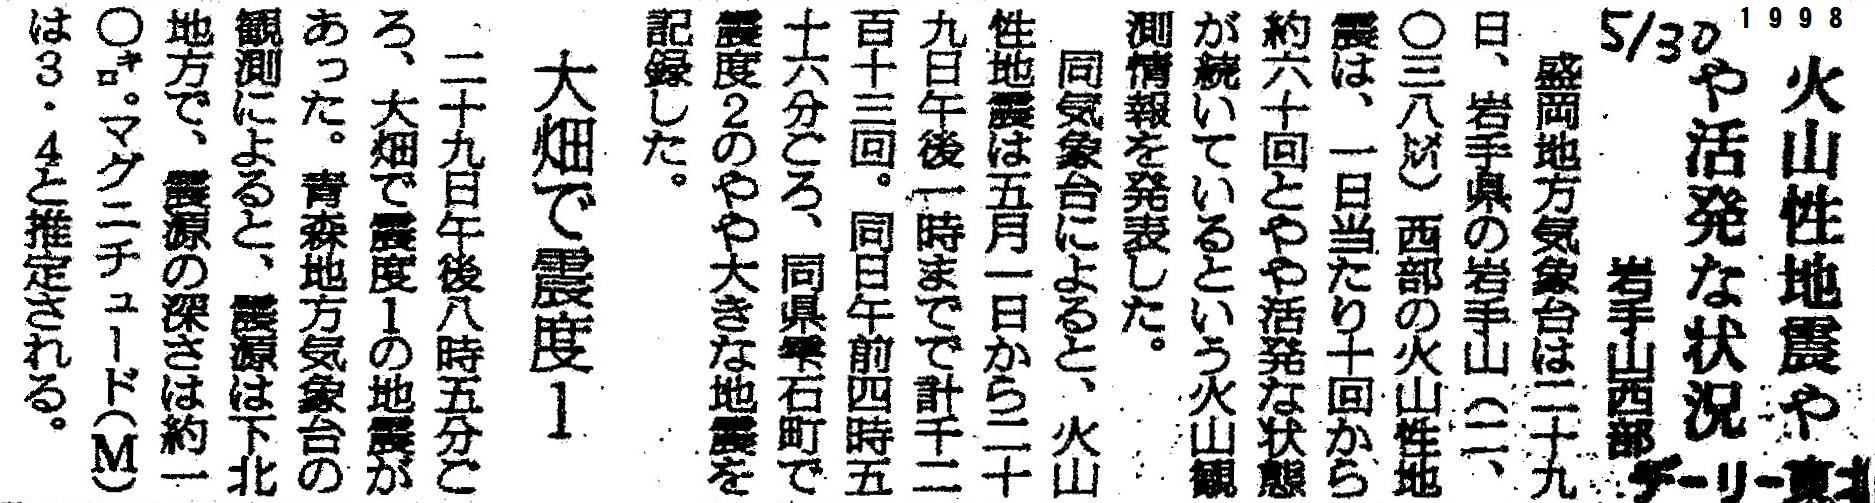 1998
5/30
火山性地震や
や活発な状況
岩手山西部
デーリー東北
盛岡地方気象台は二十九
日、岩手県の岩手山（二、
〇三八㍍）西部の火山性地
震は、一日当たり十回から
約六十回とやや活発な状態
が続いているという火山観
測情報を発表した。
同気象台によると、火山
性地震は五月一日から二十
九日午後一時までで計千二
百十三回。同日午前四時五
十六分ごろ、同県雫石町で
震度2のやや大きな地震を
記録した。
大畑で震度1
二十九日午後八時五分ご
ろ、大畑で震度1の地震が
あった。青森地方気象台の
観測によると、震源は下北
地方で、震源の深さは約一
〇㌔。マグニチュード（M）
は3・4と推定される。